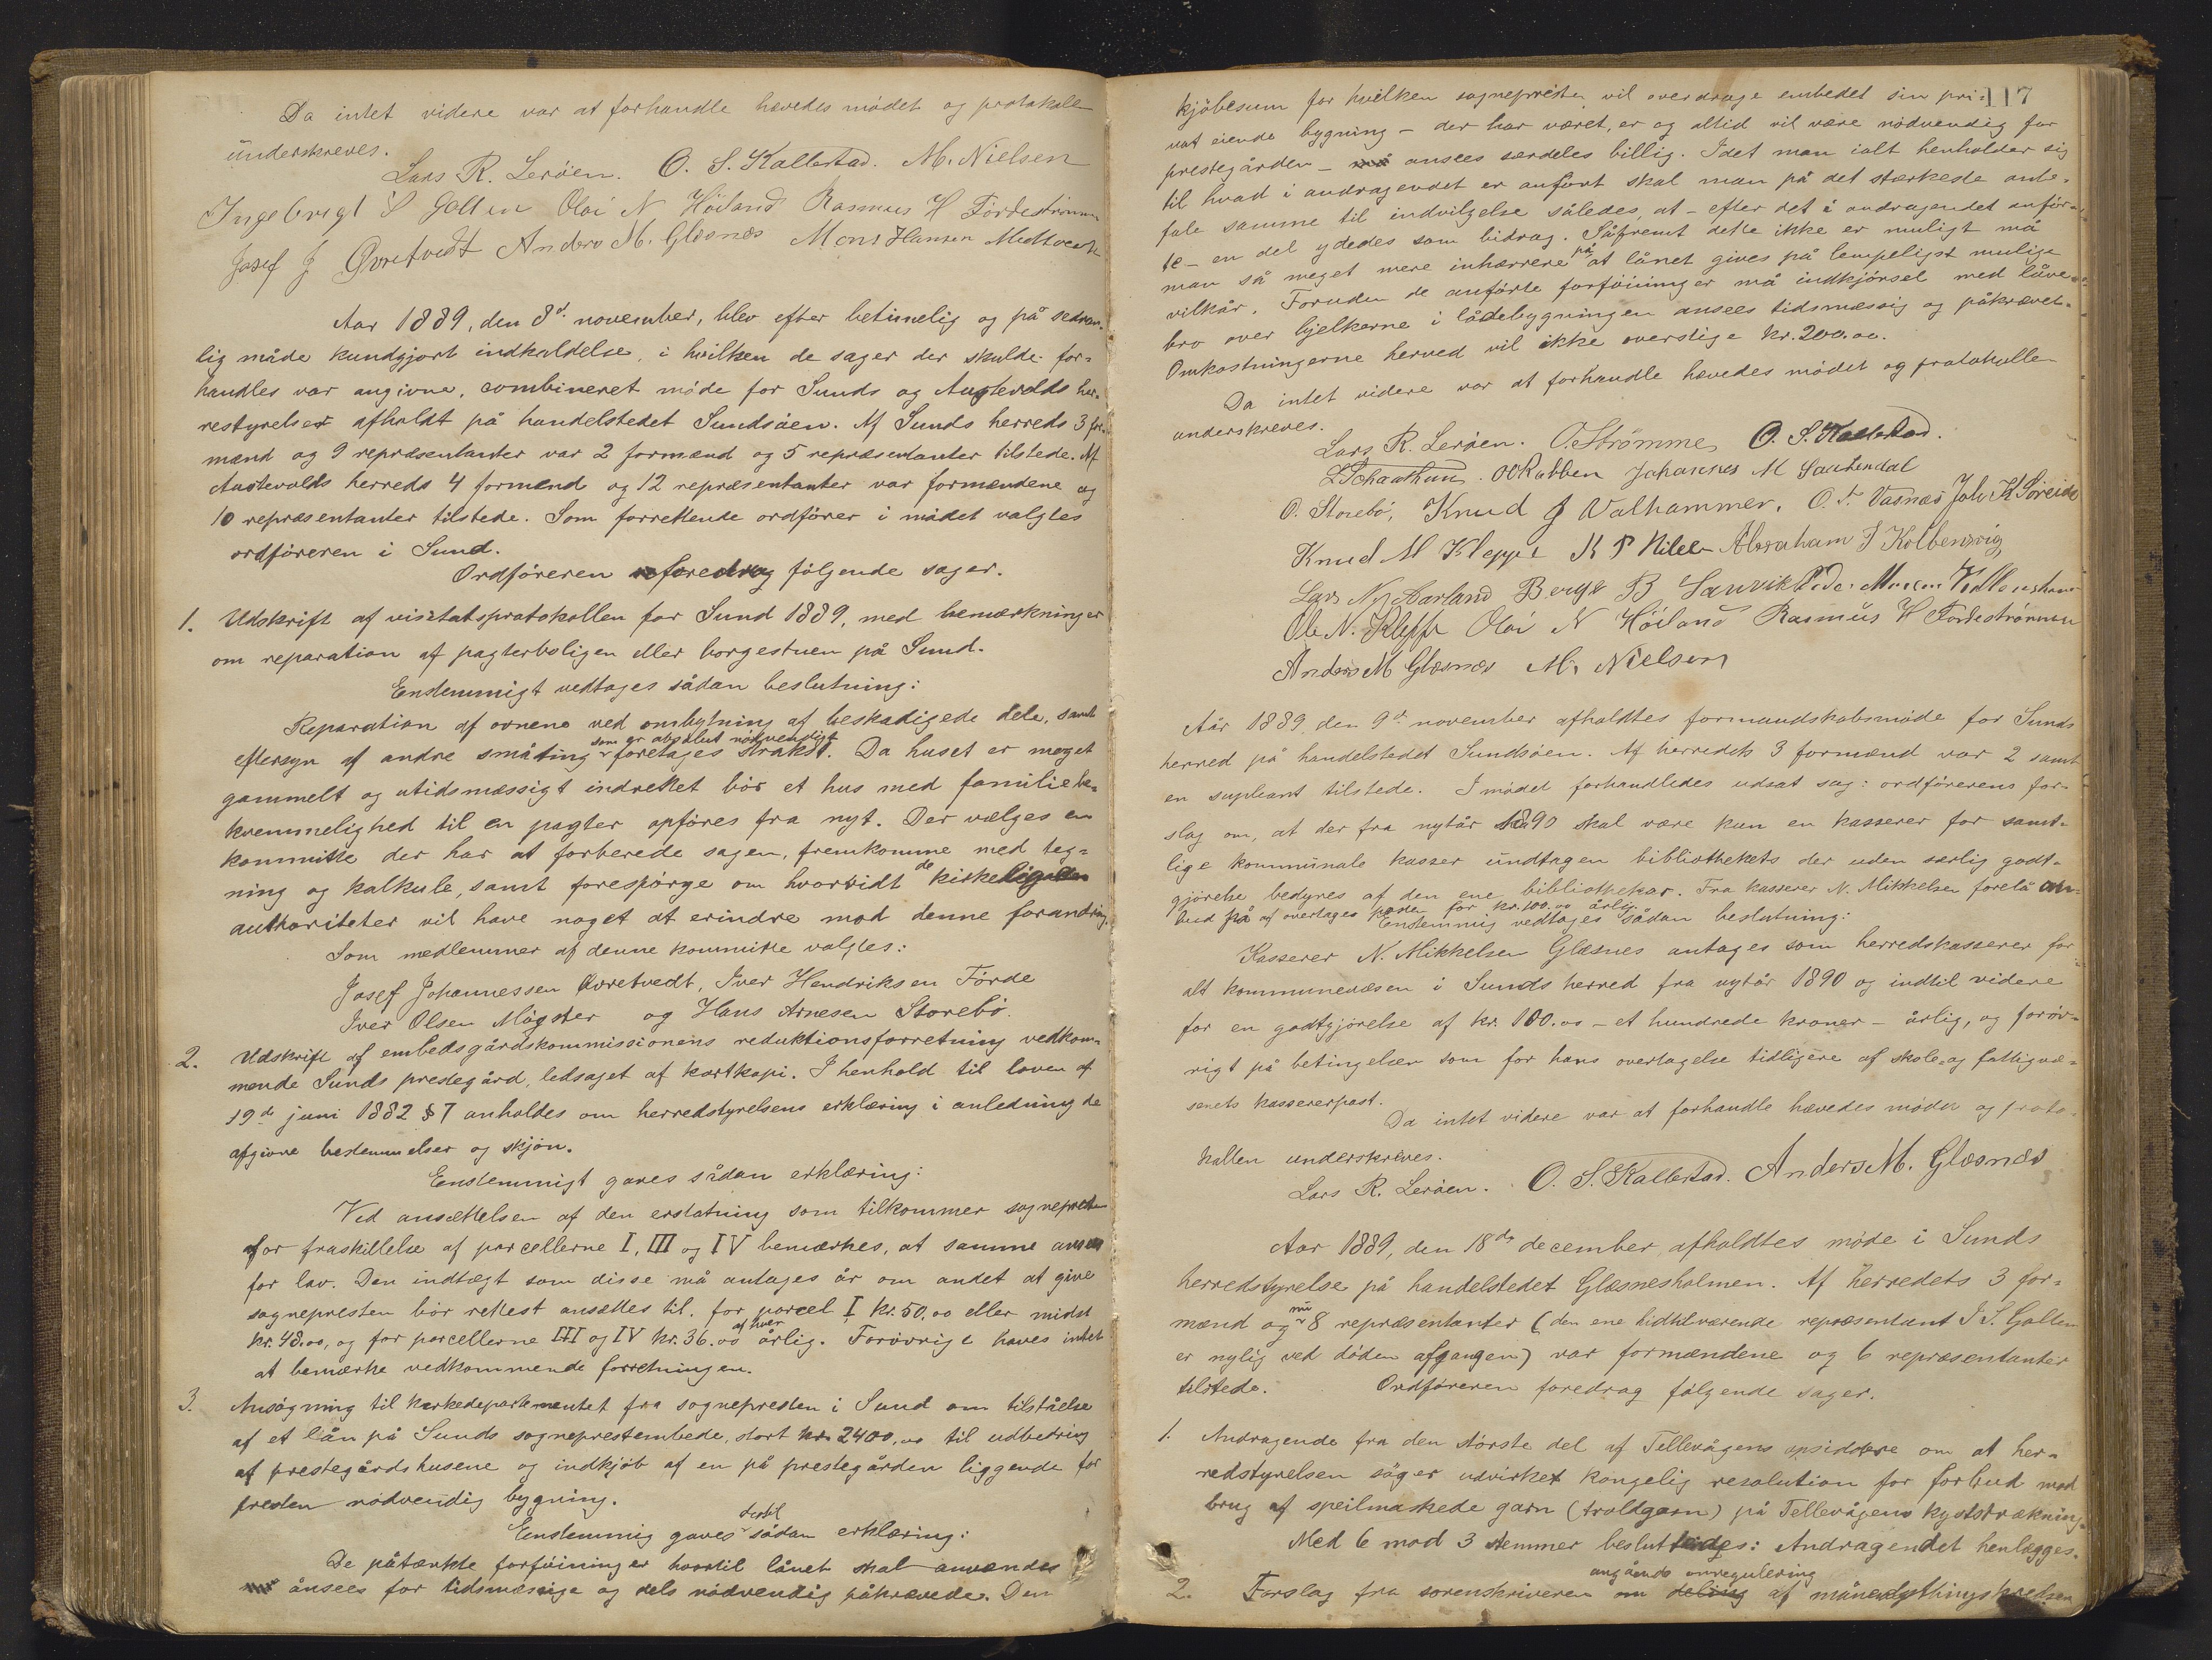 Da intet videre var at forhandle hævedes mödet og protokolle
underskreves.
Lars R. Leröen. O. S. Kallestad. M. Nielsen
Ingebrigt S Golten Olai N Höiland Rasmus H Fördeströnmen
Josef J Øvretvedt Anders M. Glæsnæs Mons Hansen Midtveit
Aar 1889, den 8d. november, blev efter betimelig og på sedvan-
lig måde kundgjort indkaldelse, i hvilken de sager der skulde for-
handles var angivne, combineret möde for Sunds og Austevolds her-
restyrelser afholdt på handelstedet Sundsöen. Af Sunds herreds 3 for-
mænd og 9 repræsentanter var 2 formænd og 5 repræsentanter tilstede. Af
Austevolds herreds 4 formænd og 12 repræsentanter var formændene og
10 repræsentanter tilstede. Som forrettende ordförer i mödet valgtes
ordföreren i Sund.
Ordföreren foredrog fölgende sager.
1. Udskrift af visitatsprotokollen for Sund 1889, med bemærkninger
om reparation af pagterboligen eller borgestuen på Sund.
Enstemmigt vedtages sådan beslutning:
Reparation af ovnene ved ombytning af beskadigede dele, samt
som er absolut nödvendigt
eftersyn af andre småting foretages strakst. Da huset er meget
gammelt og utidsmæssigt indrettet bör et hus med familiebe-
kvemmelighed til en pagter opföres fra nyt. Der vælges en
kommitte der har at forberede sagen, fremkomme med teg-
ning og kalkule, samt forespörge om hvorvidt de kirkelige
authoriteter vil have noget at erindre mod denne forandring.
Som medlemmer af denne kommitte valgtes:
Josef Johannessen Øvretvedt, Iver Hendriksen Förde
Iver Olsen Mögster og Hans Arnesen Storebö.
2. Udskrift af embedsgårdskommissionens reduktionsforretning vedkom-
mende Sunds prestegård, ledsaget af kartkopi. I henhold til loven af
19de juni 1882 § 7 anholdes om herredstyrelsens erklæring i anledning de
afgivne bestemmelser og skjön.
Enstemmigt gaves sådan erklæring:
Ved ansættelsen af den erstatning som tilkommer sognepresten
for fraskillelse af parcellerne I, III og IV bemærkes, at samme ansees
for lav. Den indtægt som disse må antages år om andet at give
sognepresten bör rettest ansættes til, for parcel I kr. 50,00 eller midst
kr. 48.00, og for parcellerne III og IV kr. 36.00 af hver årlig. Forövrigt haves intet
at bemærke vedkommende forretningen.
3. Ansögning til kirkedepartementet fra sognepresten i Sund om tilståelse
af et lån på Sunds sogneprestembede, stort kr. 2400,00 til udbedring
af prestegårdshusene og indkjöb af en på prestegården liggende for
presten nödvendig bygning.
Enstemmig gaves dertil sådan erklæring:
De påtænkte forföininger hvortil lånet skal anvendes
ansees for tidsmæssige og dels nödvendig påkrævede. Den
117
kjöbesum for hvilken sognepresten vil overdrage embedet sin pri-
vat eiende bygning – der har været, er og altid vil være nödvendig for
prestegården – må ansees særdeles billig. Idet man ialt henholder sig
til hvad i andragendet er anfört skal man på det stærkeste anbe-
fale samme til indvilgelse således, at – efter det i andragendet anför-
te – en del ydedes som bidrag. Såfremt dette ikke er muligt må
man så meget mere inhærrere på at lånet gives på lempeligst mulige
vilkår. Foruden de anförte forföininger må indkjörsel med låve-
bro over bjelkerne i lådebygningen ansees tidsmæssig og påkrævet.
Omkostningerne herved vil ikke overstige kr. 200.00.
Da intet videre var at forhandle hævedes mödet og protokollen
underskreves.
Lars R. Leröen. O. Strömme O. S. Kallestad.
L Schaathun. O Rabben Johannes M Santendal
O. Storebö, Knud J Valhammer. O. T. Vasnæs Joh. K Söreide
Knud M Kleppe K P Nilsen Abraham J Kolbensvig
Lars N Aarland Berge B Sanvik Peder
Ole N. Kleppe Olai N Höiland Rasmus H Fördeströnmen
Anders M Glæsnæs M. Nielsen
Aår 1889, den 9de november afholdtes formandskabsmöde for Sunds
herred på handelstedet Sundsöen. Af herredets 3 formænd var 2 samt
en supleant tilstede. I mödet forhandledes udsat sag: ordförerens for-
slag om, at der fra nytår 1890 skal være kun en kasserer for samt-
lige kommunale kasser undtagen bibliothekets der uden særlig godt-
gjörelse bestyres af den ene bibliothekar. Fra kasserer N. Mikkelsen forelå an-
bud på af overtages posten for kr. 100.00 årlig.
Enstemmig vedtages sådan beslutning:
Kasserer N. Mikkelsen Glæsnes antages som herredskasserer for
alt kommunevæsen i Sunds herred fra nytår 1890 og indtil videre
for en godtgjörelse af kr. 100.00 – et hundrede kroner – årlig, og foröv-
rigt på betingelser som for hans overtagelse tidligere af skole- og fattigvæ-
senets kassererpost.
Da intet videre var at forhandle hævedes mödet og proto-
kollen underskreves.
Lars R. Leröen. O. S. Kallestad. Anders M. Glæsnæs
Aar 1889, den 18de december, afholdtes möde i Sunds
herredstyrelse på handelstedet Glæsnesholmen. Af herredets 3 for-
mænd og nu 8 repræsentanter (den ene hidtilværende repræsentant I S. Golten
er nylig ved döden afgangen) var formændene og 6 repræsentanter
tilstede. Ordföreren foredrog fölgende sager.
1. Andragende fra den störste del af Tellevågens opsiddere om at her-
redstyrelsen söger udvirket kongelig resolution for forbud mod
brug af speilmaskede garn (troldgarn) på Tellevågens kyststrækning.
Med 6 mod 3 stemmer besluttedes: Andragendet henlægges.
angående omregulering
2. Forslag fra sorenskriveren om deling af månedsthingskredsen